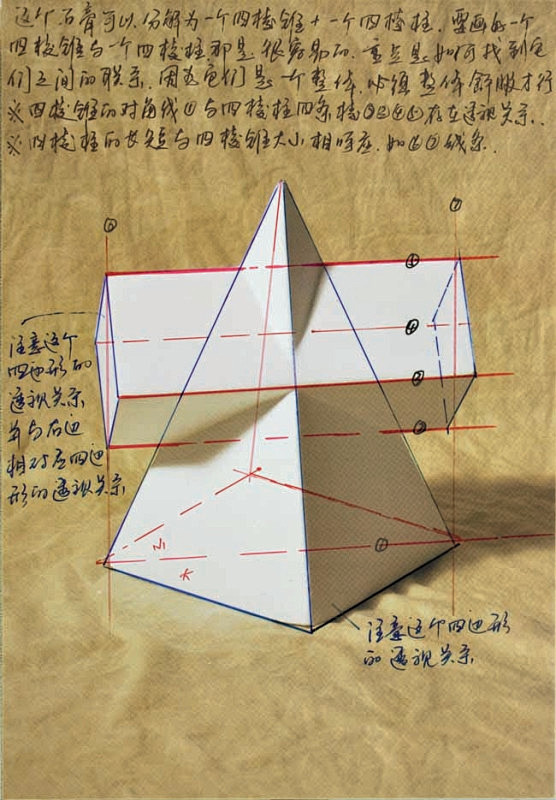 这个石膏可以分解为一个四棱锥+一个四棱柱.要画好一个
四棱锥与一个四棱柱那是很容易的.重点是如何找到它
们之间的联系.因为它们是一个整体.必须整体舒服才行
※四棱锥的对角线①与四棱柱四条棱③②④⑤存在透视关系.
※四棱柱的长短与四棱锥大小相呼应.如⑥⑦线条.
⑥
⑦
⑤
④
②
③
①
小
大
注意这个
四边形的
透视关系
并与右边
相对应四边
形的透视关系
注意这个四边形
的透视关系